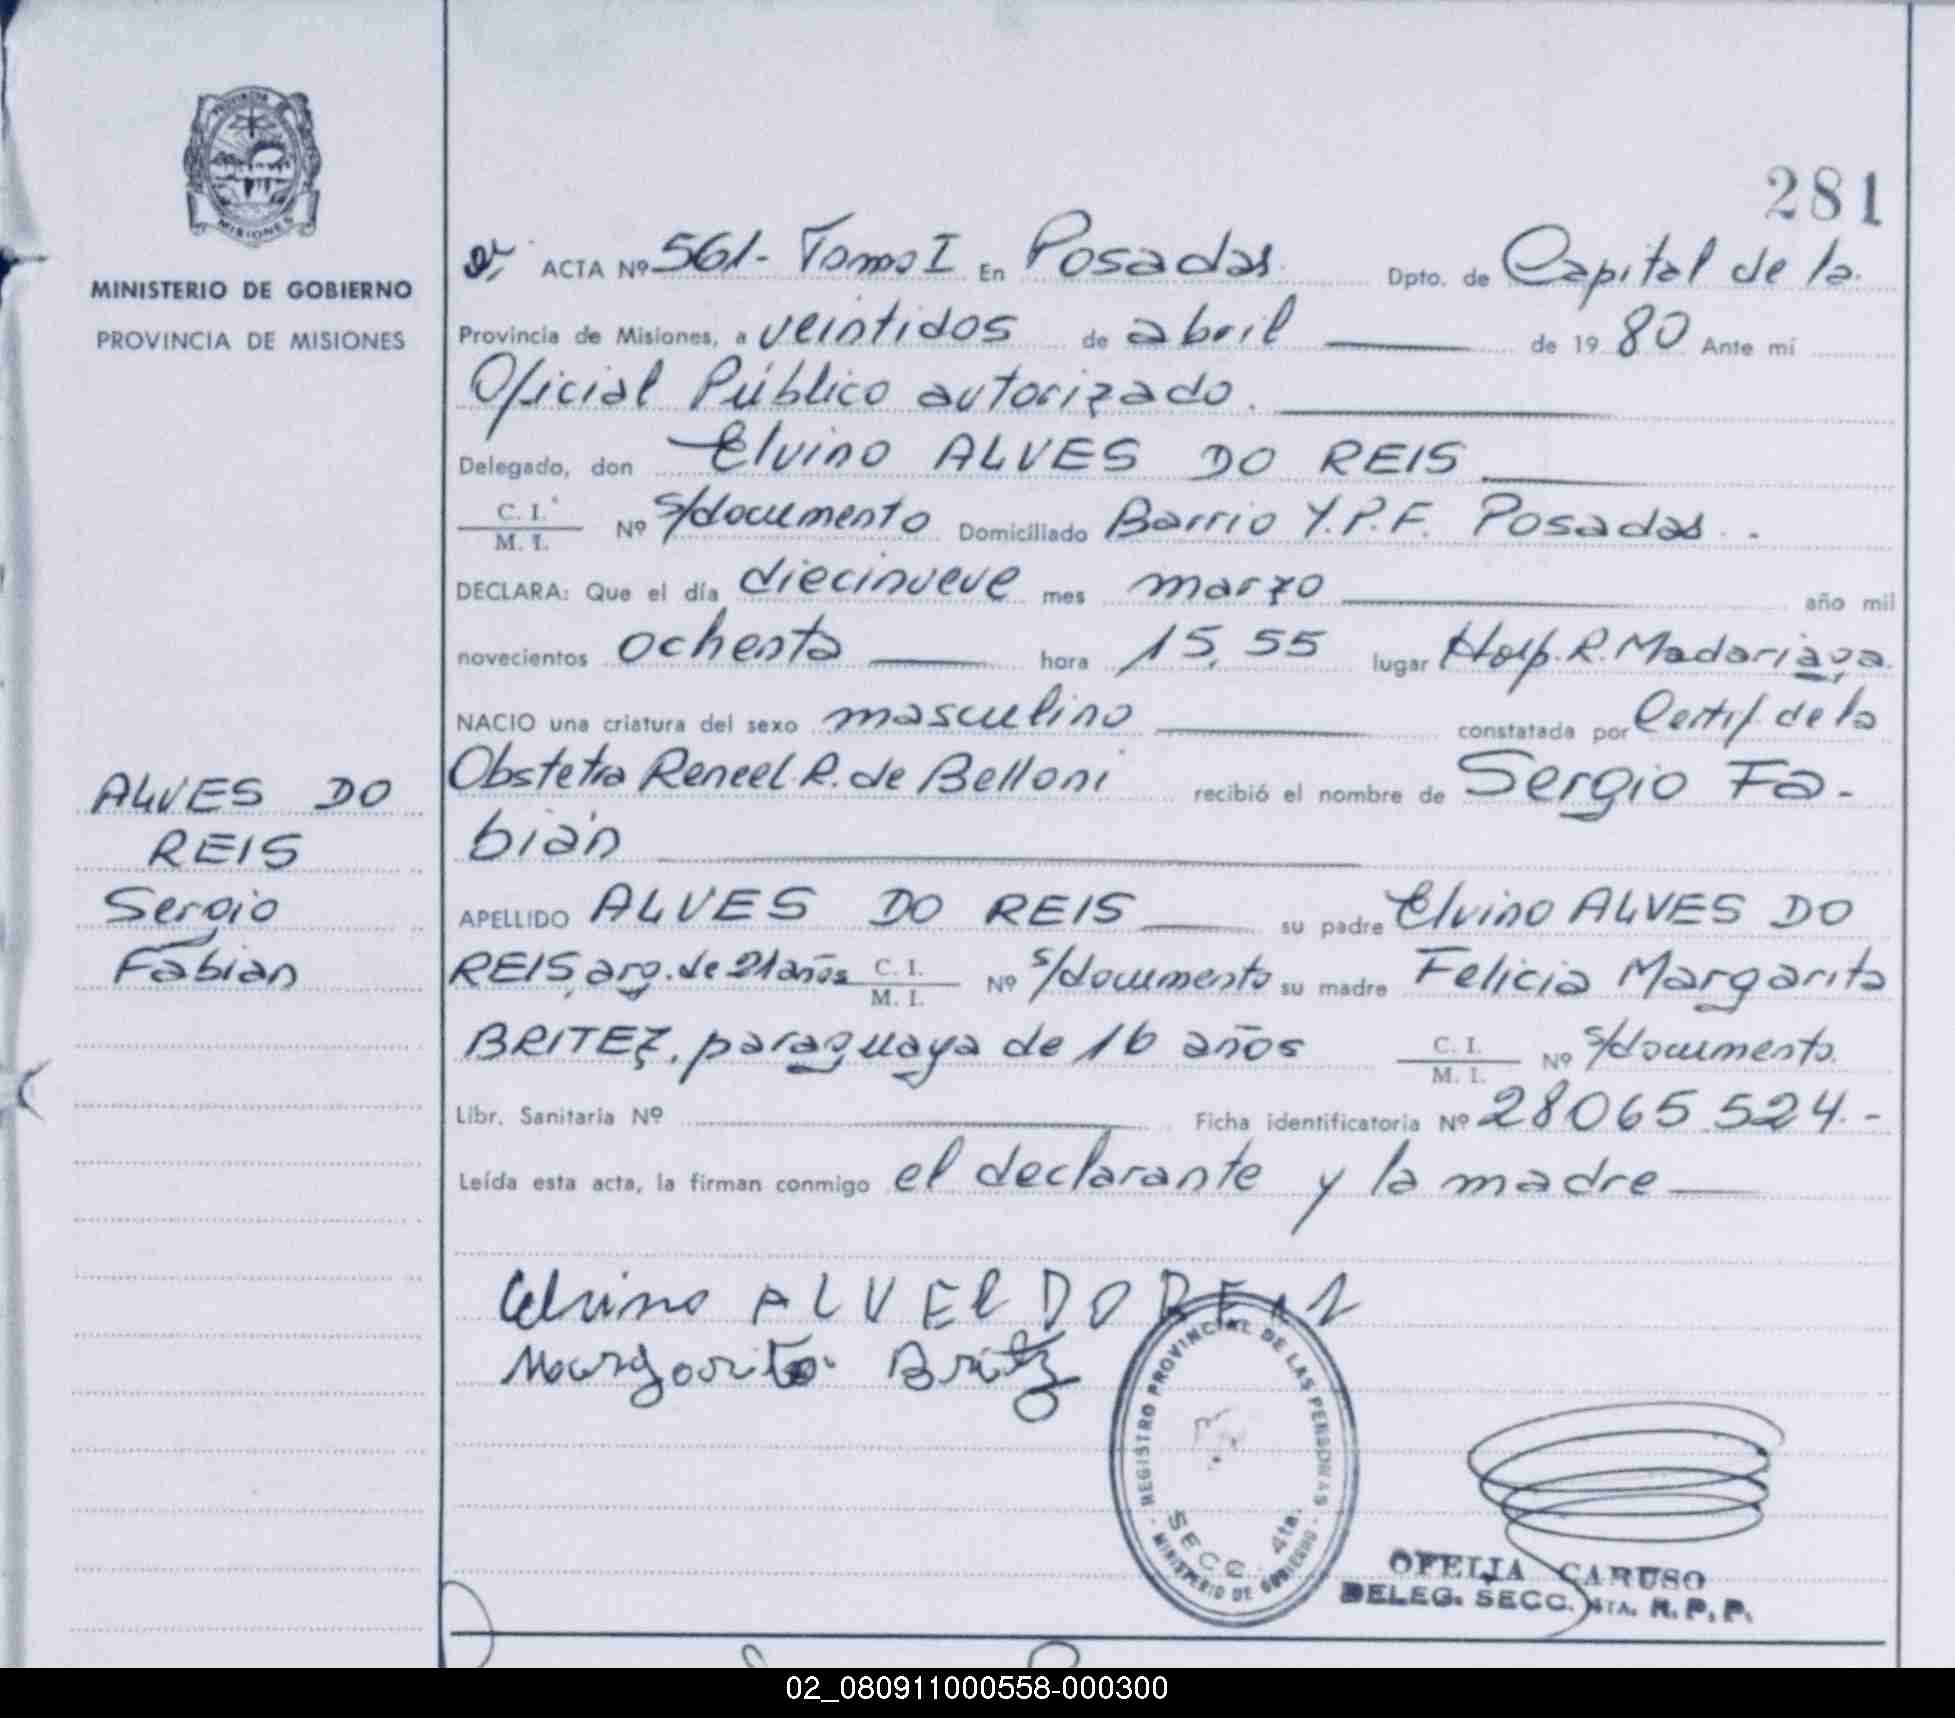 PROVINCIA DE
MISIONES
MINISTERIO DE GOBIERNO
PROVINCIA DE MISIONES
281
ACTA Nº 561- Tomo I En Posadas Dpto. de Capital de la
Provincia de Misiones, a veintidos de abril de 1980 Ante mí
Oficial Público autorizado.
Delegado, don Elvino ALVES DO REIS
C. I.
M. I. Nº s/documento Domiciliado Barrio Y.P.F. Posadas..
DECLARA: Que el día diecinueve mes marzo año mil
novecientos ochenta hora 15,55 lugar Hosp. R. Madariaga.
NACIO una criatura del sexo masculino constatada por Certif. de la
Obstetra Reneel R. de Belloni recibió el nombre de Sergio Fa-
bián
APELLIDO ALVES DO REIS su padre Elvino ALVES DO
REIS, arg. de 21 años C. I.
M. I. Nº s/documento su madre Felicia Margarita
BRITEZ, paraguaya de 16 años C. I.
M. I. Nº s/documento.
Libr. Sanitaria Nº Ficha identificatoria Nº 28065524.-
Leída esta acta, la firman conmigo el declarante y la madre
ALVES DO
REIS
Sergio
Fabian
Elvino ALVEL DO
Margarita Britz
REGISTRO PROVINCIAL DE LAS PERSONAS
SECC. 4ta.
MINISTERIO DE GOBIERNO
OFELIA CARUSO
DELEG. SECC. 4TA. R. P. P.
02_080911000558-000300